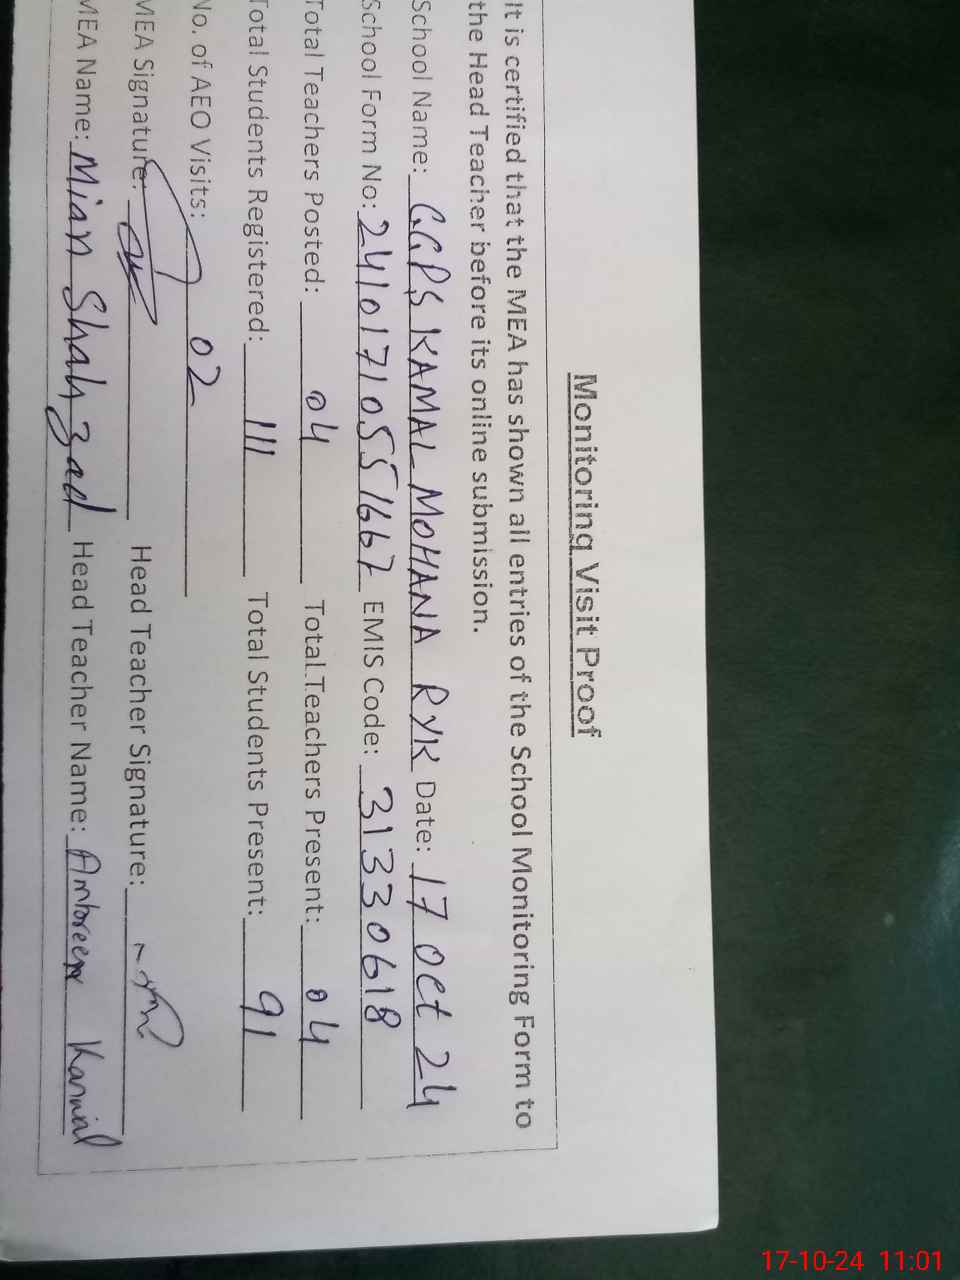 Monitoring Visit Proof
It is certified that the MEA has shown all entries of the School Monitoring Form to
the Head Teacher before its online submission.
School Name: G.G.P.S KAMAL MOHANA RYK Date: 17 Oct 24
School Form No: 24101710551667 EMIS Code: 31330618
Total Teachers Posted: 04 Total Teachers Present: 04
Total Students Registered: 111 Total Students Present: 91
No. of AEO Visits: 02
MEA Signature: Head Teacher Signature:
MEA Name: Mian Shahzad Head Teacher Name: Ambreen Kanwal
17-10-24 11:01